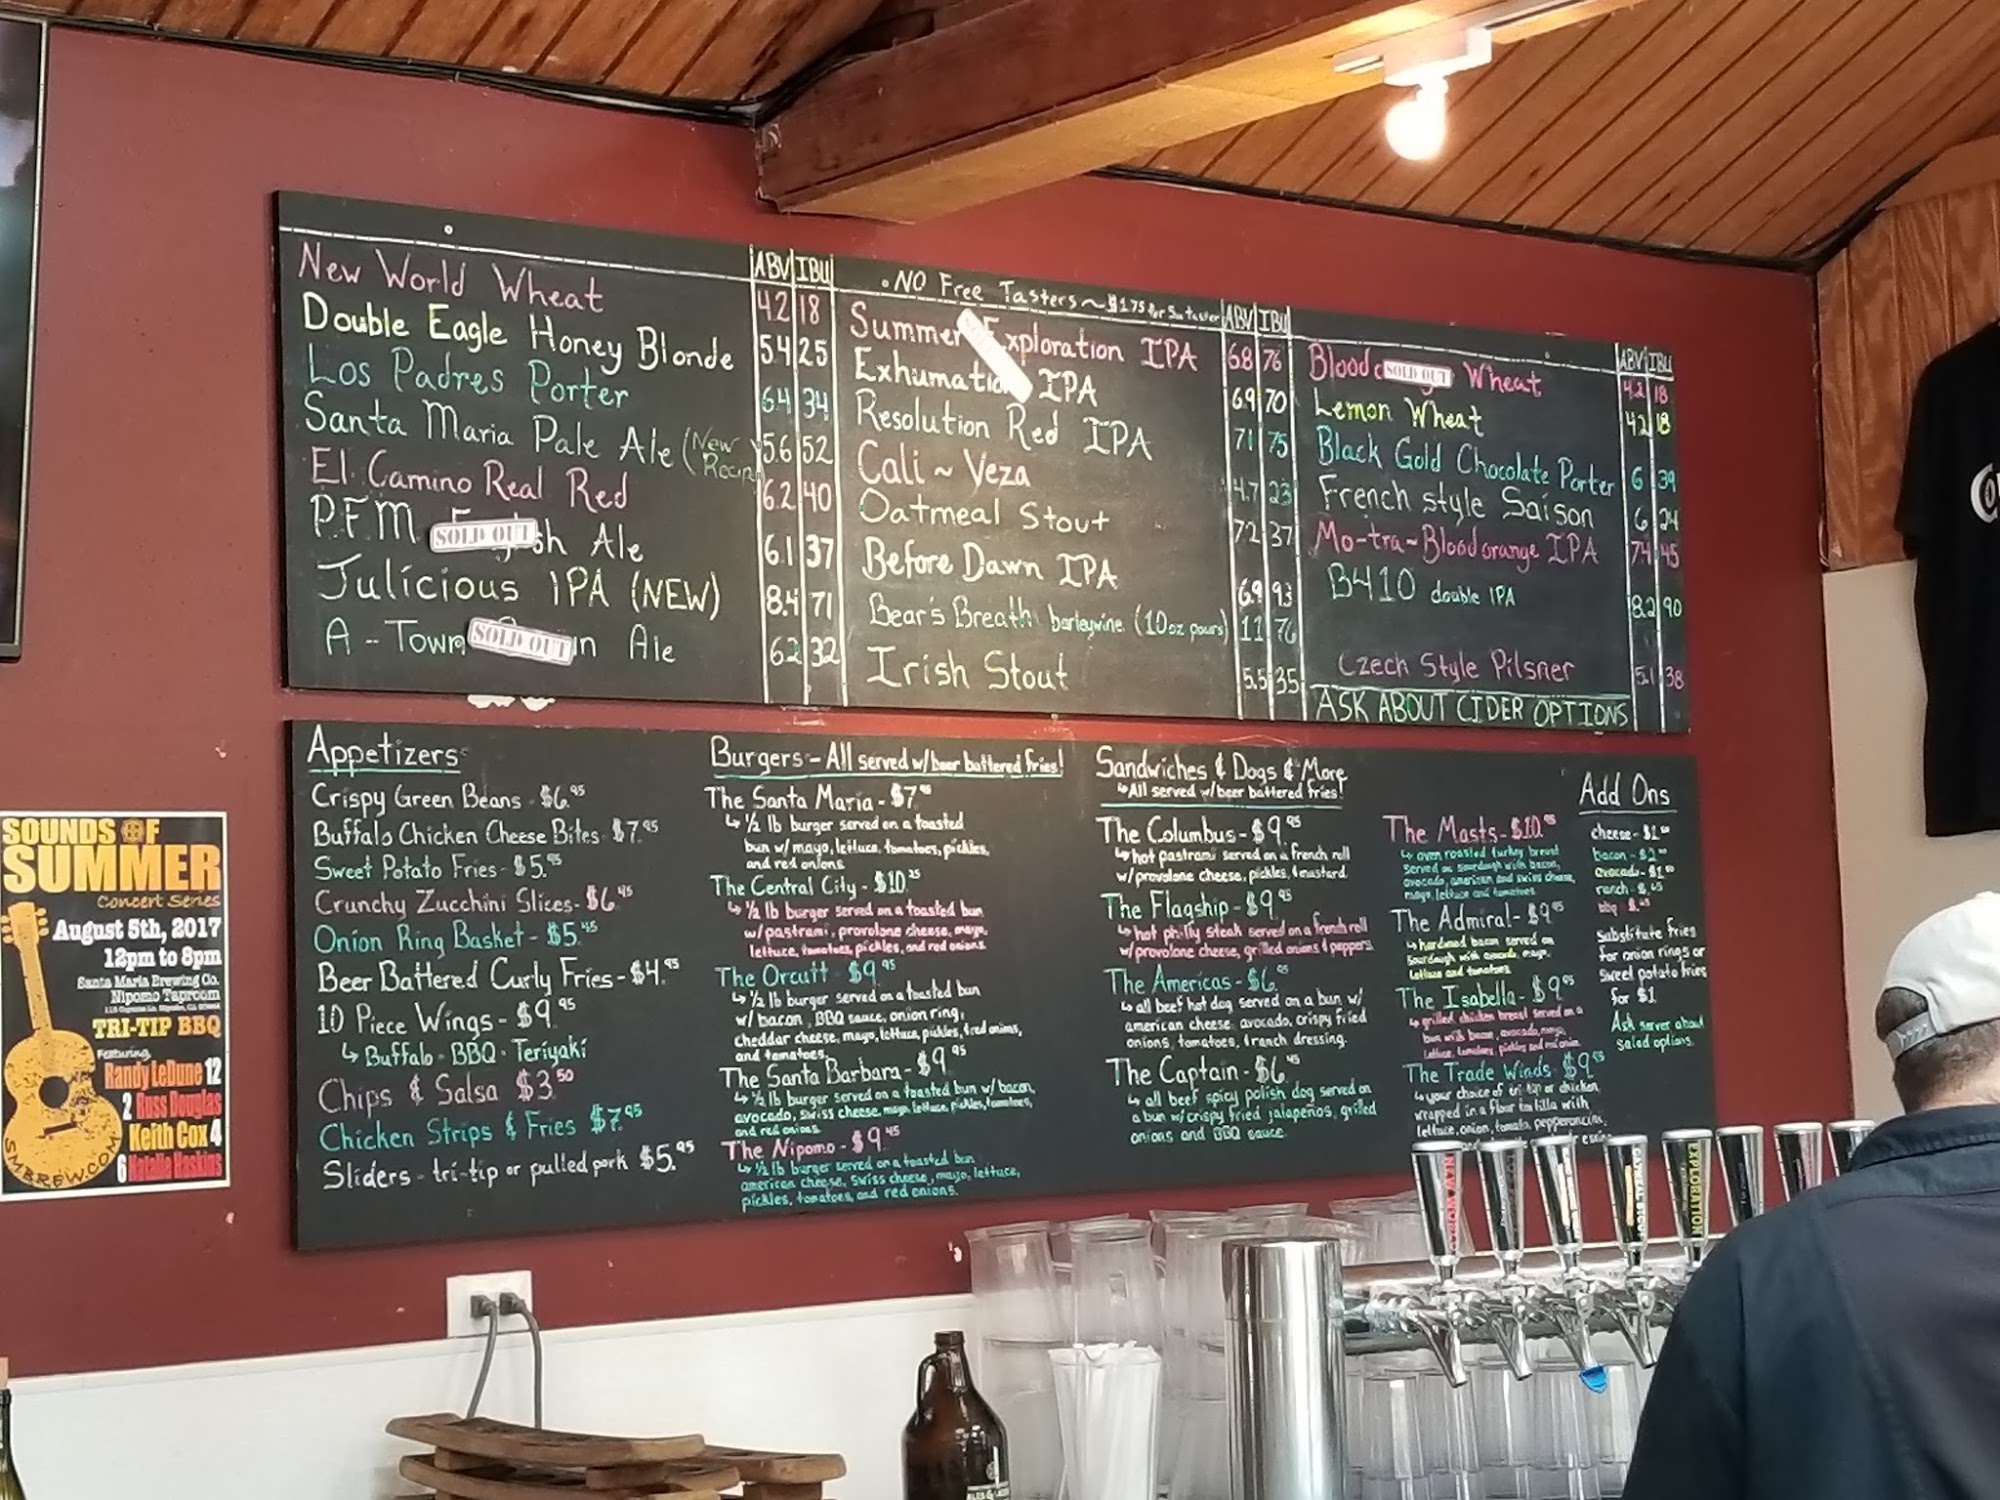 ABV IBU
New World Wheat 4.2 18
Double Eagle Honey Blonde 5.4 25
Los Padres Porter 6.4 34
Santa Maria Pale Ale (New 5.6 52
El Camino Real Red 6.2 40
PFM SOLD OUT sh Ale 6.1 37
Julicious IPA (NEW) 8.4 71
A-Town SOLD OUT n Ale 6.2 32
• NO Free Tasters ~ $1.75 for 5oz taster ABV IBU
Summer Exploration IPA 6.8 76
Exhumation IPA 6.9 70
Resolution Red IPA 7.1 75
Cali ~ Veza 4.7 23
Oatmeal Stout 7.2 37
Before Dawn IPA 6.9 93
Bear's Breath barleywine (10oz pours) 11 76
Irish Stout 5.5 35
ABV IBU
Blood SOLD OUT Wheat 4.2 18
Lemon Wheat 4.2 18
Black Gold Chocolate Porter 6 39
French style Saison 6 24
Mo-tra~Blood orange IPA 7.4 45
B410 double IPA 8.2 90
Czech Style Pilsner 5.1 38
ASK ABOUT CIDER OPTIONS
Appetizers
Crispy Green Beans - $6.95
Buffalo Chicken Cheese Bites - $7.95
Sweet Potato Fries - $5.95
Crunchy Zucchini Slices - $6.45
Onion Ring Basket - $5.45
Beer Battered Curly Fries - $4.95
10 Piece Wings - $9.95
↳ Buffalo - BBQ - Teriyaki
Chips & Salsa $3.50
Chicken Strips & Fries $7.95
Sliders - tri-tip or pulled pork $5.95
Burgers - All served w/beer battered fries!
The Santa Maria - $7
↳ 1/2 lb burger served on a toasted
bun w/mayo, lettuce, tomatoes, pickles,
and red onions
The Central City - $10.25
↳ 1/2 lb burger served on a toasted bun
w/pastrami, provolone cheese, mayo,
lettuce, tomatoes, pickles, and red onions.
The Orcutt - $9.95
↳ 1/2 lb burger served on a toasted bun
w/bacon, BBQ sauce, onion ring,
cheddar cheese, mayo, lettuce, pickles, red onions,
and tomatoes.
The Santa Barbara - $9.95
↳ 1/2 lb burger served on a toasted bun w/bacon,
avocado, swiss cheese, mayo, lettuce, pickles, tomatoes,
and red onions.
The Nipomo - $9.45
↳ 1/2 lb burger served on a toasted bun
american cheese, swiss cheese, mayo, lettuce,
pickles, tomatoes, and red onions.
Sandwiches & Dogs & More
↳ All served w/beer battered fries!
The Columbus - $9.95
↳ hot pastrami served on a french roll
w/provolone cheese, pickles, & mustard.
The Flagship - $9.95
↳ hot philly steak served on a french roll
w/provolone cheese, grilled onions & peppers
The Americas - $6.95
↳ all beef hot dog served on a bun w/
american cheese, avocado, crispy fried
onions, tomatoes, & ranch dressing.
The Captain - $6.45
↳ all beef spicy polish dog served on
a bun w/crispy fried jalapeños, grilled
onions and BBQ sauce.
The Masts - $10.95
↳ oven roasted turkey breast
served on sourdough with bacon,
avocado, american and swiss cheese,
mayo, lettuce and tomatoes.
The Admiral - $9.95
↳ hardwood bacon served on
sourdough with avocado, mayo,
lettuce and tomatoes.
The Isabella - $9.95
↳ grilled chicken breast served on a
bun with bacon, avocado, mayo,
lettuce, tomatoes, pickles and red onion.
The Trade Winds - $9
↳ your choice of tri-tip or chicken
wrapped in a flour tortilla with
lettuce, onion, tomato, pepperoncini,
Add Ons
cheese - $1
bacon - $2
avocado - $1
ranch - $
bbq - $
Substitute fries
for onion rings or
sweet potato fries
for $1.
Ask server about
salad options.
SOUNDS OF
SUMMER
Concert Series
August 5th, 2017
12pm to 8pm
Santa Maria Brewing Co.
Nipomo Taproom
TRI-TIP BBQ
Featuring
Randy LeDune 12
2 Russ Douglas
Keith Cox 4
6 Natalie Haskins
SMBREW.COM
EXPLORATION